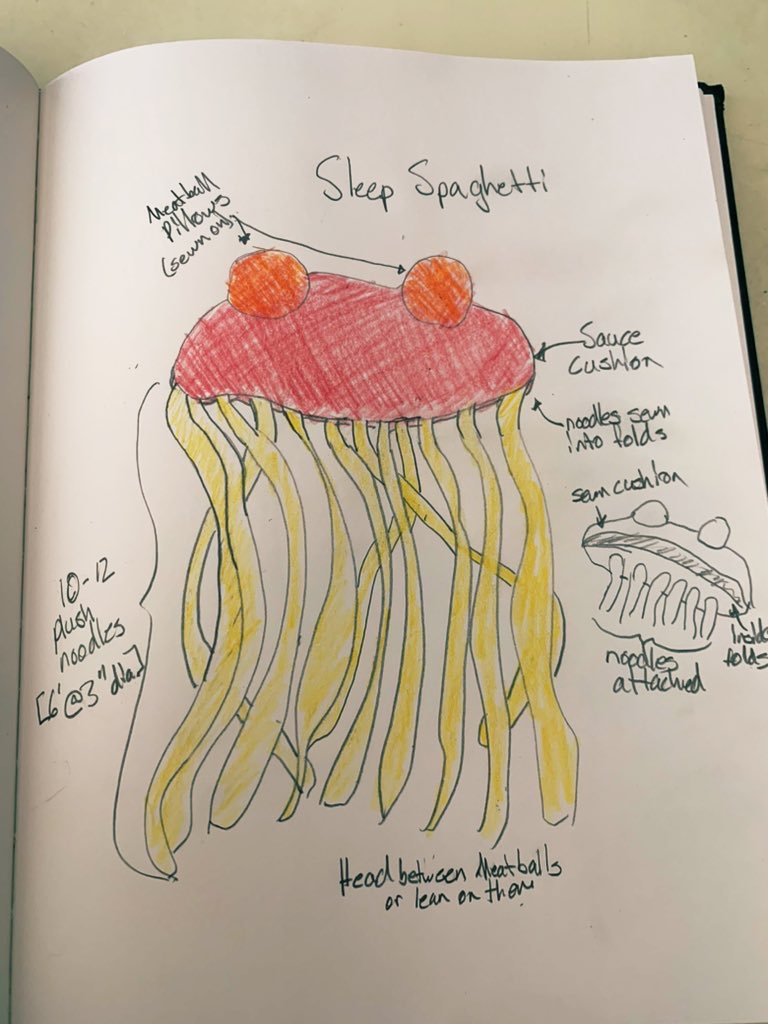 Sleep Spaghetti
Meatball
Pillows
(sewn on)
Sauce
cushion
noodles sewn
into folds
sewn cushion
Inside
folds
noodles
attached
10-12
plush
noodles
[6'@3" dia]
Head between Meatballs
or lean on them